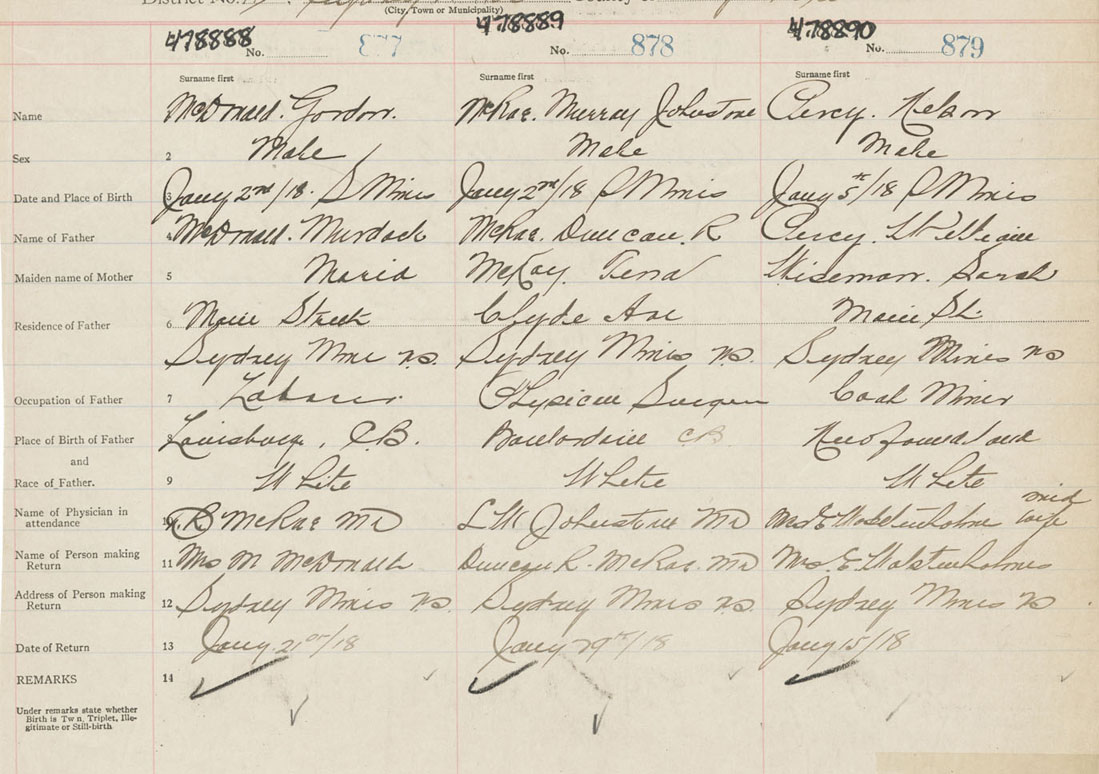 District No.
(City, Town or Municipality)
478888 No. 877 478889 No. 878 478890 No. 879
Surname first Surname first Surname first
Name McDonald. Gordon. McRae. Murray Johnstone Percy. Nelson
Sex 2 Male Male Male
Date and Place of Birth 3 Jany 2nd/18. S Mines Jany 2nd/18 S Mines Jany 5th/18 S Mines
Name of Father 4 McDonald. Murdock McRae. Duncan. R Percy. William
Maiden name of Mother 5 Maria McKay. Tena Wiseman. Sarah
Residence of Father 6 Main Street Clyde Ave Main St.
Sydney Mines NS. Sydney Mines NS. Sydney Mines NS
Occupation of Father 7 Laborer. Physician Surgeon Coal Miner
Place of Birth of Father 8 Louisburg, C.B. CB Newfoundland
and
Race of Father. 9 White White White
Name of Physician in mid
attendance 10 R McRae MD LW Johnstone MD Mrs E Wolstenholme wife
Name of Person making
Return 11 Mrs M McDonald Duncan R. McRae. MD Mrs. E. Wolstenholme
Address of Person making
Return 12 Sydney Mines NS. Sydney Mines NS. Sydney Mines NS
Date of Return 13 Jany 21st/18 Jany 29th/18 Jany 15/18
REMARKS 14
Under remarks state whether
Birth is Twn, Triplet, Ille-
gitimate or Still-birth